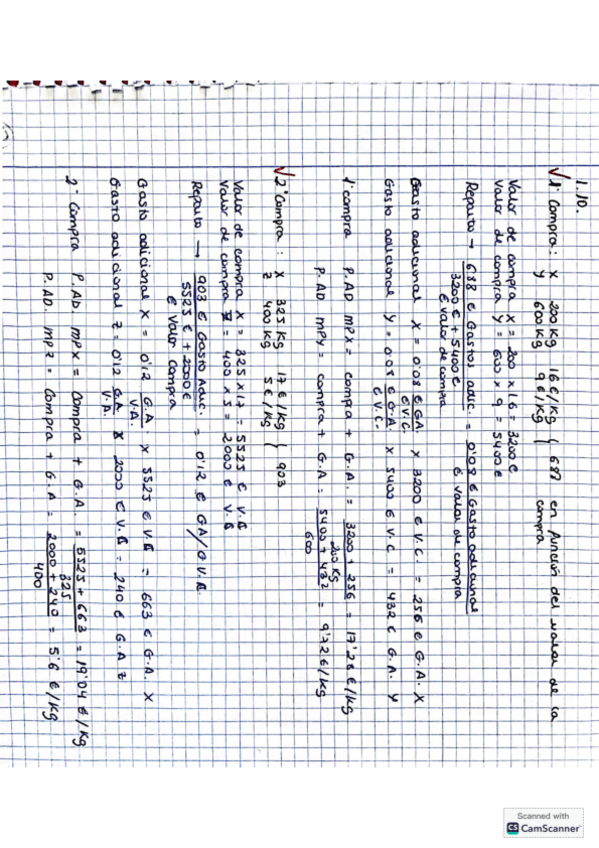 1.10.
√ 1ª Compra: X 200 Kg 16 €/Kg } 688 en función del valor de la
Y 600 Kg 9 €/Kg compra
Valor de compra X = 200 x 16 = 3200 €
Valor de compra Y = 600 x 9 = 5400 €
Reparto → 688 € Gastos adic. / 3200 € + 5400 € € valor de compra = 0'08 € Gasto adicional / € valor de compra
Gasto adicional X = 0'08 € GA / € V.C. x 3200 € V.C. = 256 € G.A. X
Gasto adicional Y = 0'08 € G.A. / € V.C. x 5400 € V.C = 432 € G.A. Y
1ª compra P.AD MPX = compra + G.A. = 3200 + 256 / 200 Kg = 17'28 €/Kg
P.AD MPY = compra + G.A = 5400 + 432 / 600 = 9'72 €/Kg
√ 2ª Compra: X 325 Kg 17 €/Kg } 903
Z 400 Kg 5 €/Kg
Valor de compra X = 325 x 17 = 5525 € V.C
Valor de compra Z = 400 x 5 = 2000 € V.C
Reparto → 903 € Gasto Adic. / 5525 € + 2000 € € Valor compra = 0'12 € GA / € V.C.
Gasto adicional X = 0'12 G.A / V.A. x 5525 € V.C = 663 € G.A. X
Gasto adicional Z = 0'12 G.A / V.A. x 2000 € V.C = 240 € G.A Z
2ª Compra P.AD. MPX = Compra + G.A. = 5525 + 663 / 325 = 19'04 €/Kg
P.AD. MPZ = Compra + G.A = 2000 + 240 / 400 = 5'6 €/Kg
Scanned with
CS CamScanner